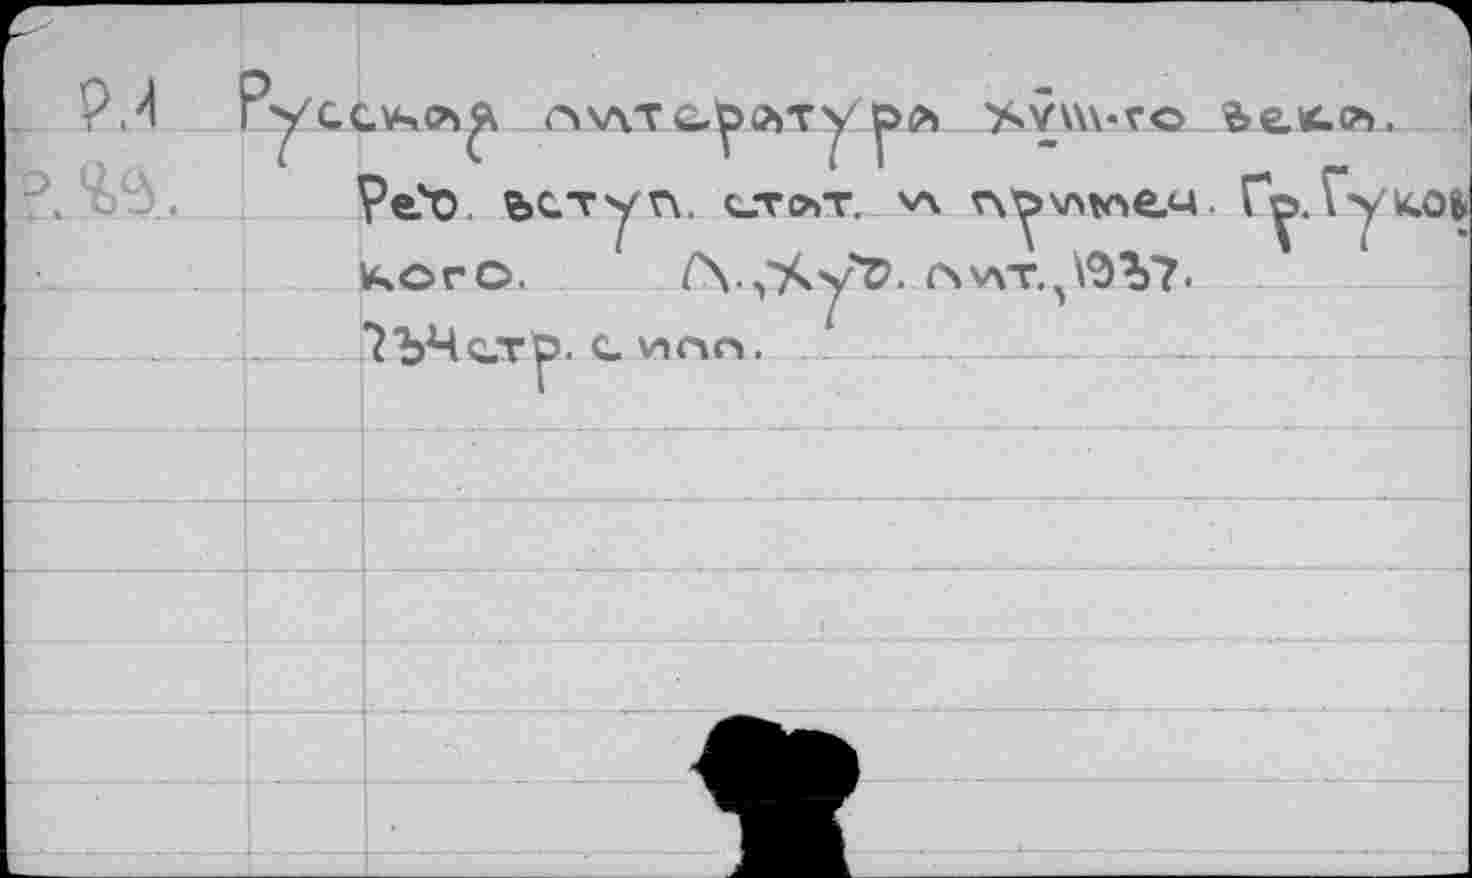 Р.1 Русская литература XVIII-го века.
Ред. вступ. стат. и примеч. Гр. Гуков
кого. Л., Худ. лит., 1937.
734 стр. с илл.